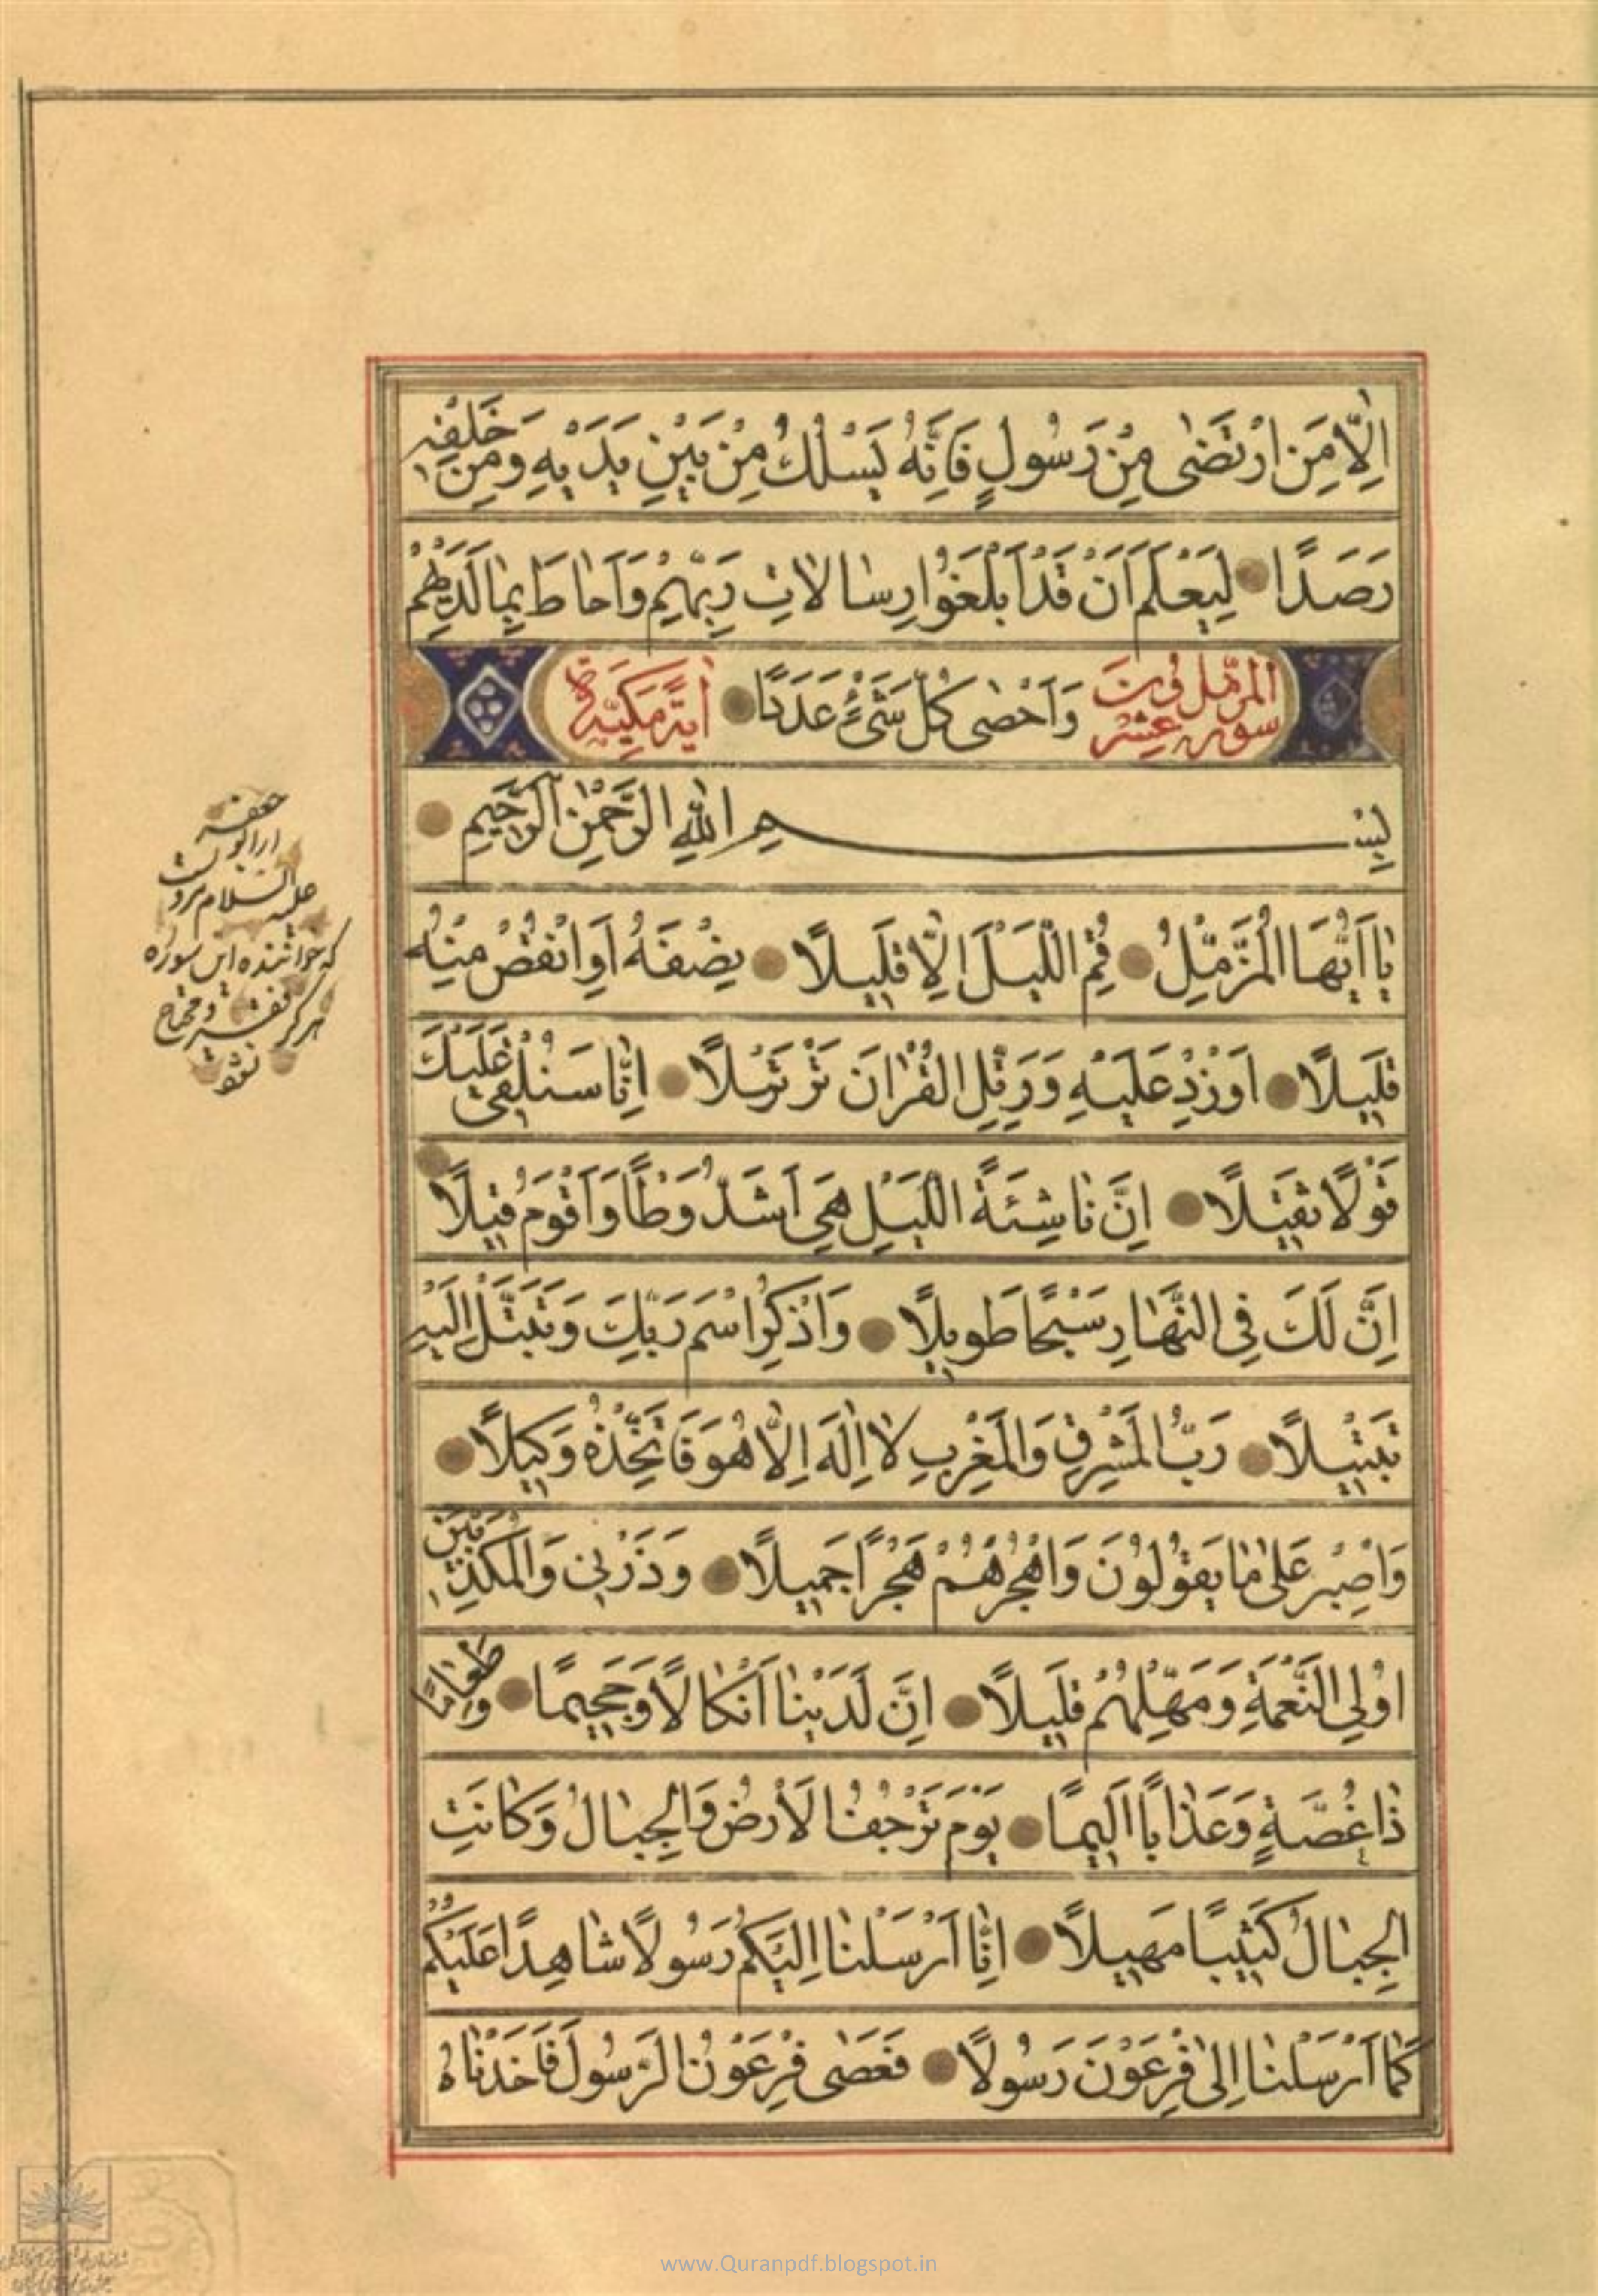 اِلّٰا مَنِ ارْتَضٰى مِنْ رَسُولٍ فَاِنَّهُ يَسْلُكُ مِنْ بَيْنِ يَدَيْهِ وَمِنْ خَلْفِهِ
رَصَدًا لِيَعْلَمَ اَنْ قَدْ اَبْلَغَوُا رِسٰالاٰتِ رَبِّهِمْ وَاَحٰاطَ بِمٰا لَدَيْهِمْ
سورة المزّمّل عشرون وَاَحْصٰى كُلَّ شَىْءٍ عَدَدًا اٰيَةً مَكِّيَّةٌ
بِسْمِ اللّٰهِ الرَّحْمٰنِ الرَّحِيمِ
يٰا اَيُّهَا الْمُزَّمِّلُ قُمِ اللَّيْلَ اِلّٰا قَلِيلًا نِصْفَهُ اَوِ انْقُصْ مِنْهُ
قَلِيلًا اَوْ زِدْ عَلَيْهِ وَرَتِّلِ الْقُرْاٰنَ تَرْتِيلًا اِنّٰا سَنُلْقِى عَلَيْكَ
قَوْلًا ثَقِيلًا اِنَّ نٰاشِئَةَ اللَّيْلِ هِىَ اَشَدُّ وَطْأً وَاَقْوَمُ قِيلًا
اِنَّ لَكَ فِى النَّهٰارِ سَبْحًا طَوِيلًا وَاذْكُرِ اسْمَ رَبِّكَ وَتَبَتَّلْ اِلَيْهِ
تَبْتِيلًا رَبُّ الْمَشْرِقِ وَالْمَغْرِبِ لاٰ اِلٰهَ اِلّٰا هُوَ فَاتَّخِذْهُ وَكِيلًا
وَاصْبِرْ عَلىٰ مٰا يَقُولُونَ وَاهْجُرْهُمْ هَجْرًا جَمِيلًا وَذَرْنِى وَالْمُكَذِّبِينَ
اُولِى النَّعْمَةِ وَمَهِّلْهُمْ قَلِيلًا اِنَّ لَدَيْنٰا اَنْكٰالًا وَجَحِيمًا وَطَعٰامًا
ذٰا غُصَّةٍ وَعَذٰابًا اَلِيمًا يَوْمَ تَرْجُفُ الْاَرْضُ وَالْجِبٰالُ وَكٰانَتِ
الْجِبٰالُ كَثِيبًا مَهِيلًا اِنّٰا اَرْسَلْنٰا اِلَيْكُمْ رَسُولًا شٰاهِدًا عَلَيْكُمْ
كَمٰا اَرْسَلْنٰا اِلىٰ فِرْعَوْنَ رَسُولًا فَعَصٰى فِرْعَوْنُ الرَّسُولَ فَاَخَذْنٰاهُ
عليه السلام مرویست
که خواننده این سوره
هرگز فقیر و محتاج
نشود
www.Quranpdf.blogspot.in